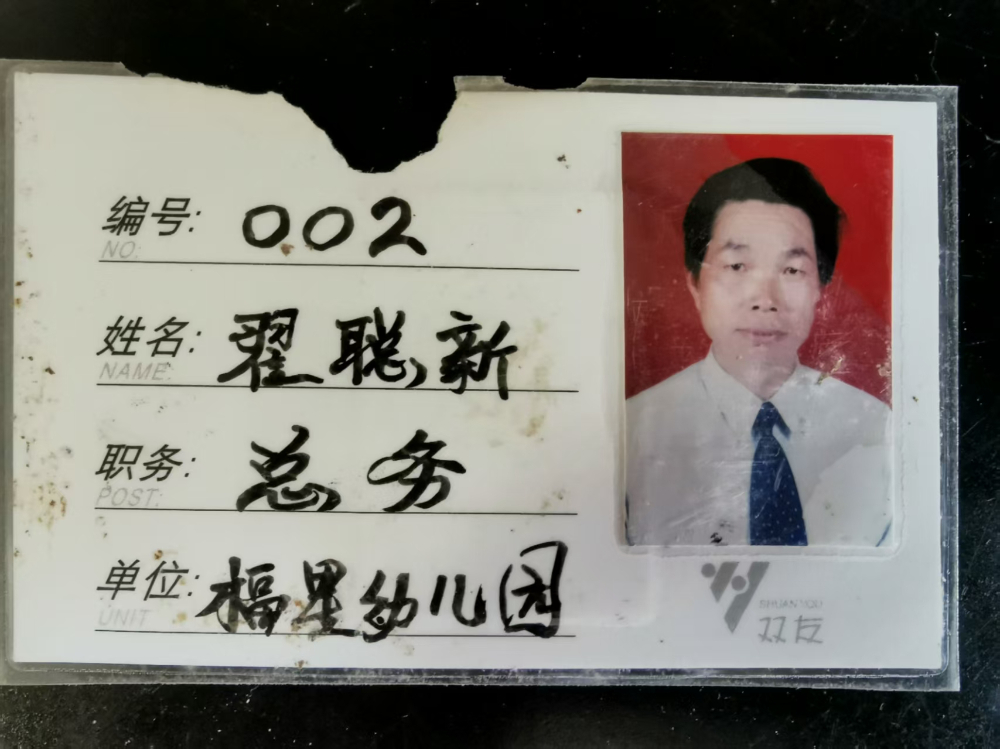 编号: 002
NO:
姓名: 翟聪新
NAME:
职务: 总务
POST:
单位: 福星幼儿园
UNIT
SHUANYOU
双友